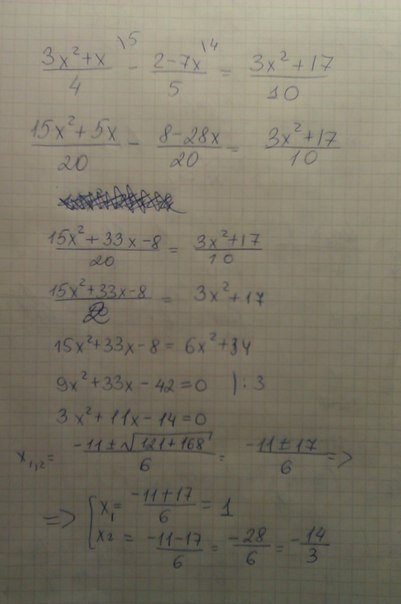 (3x²+x)/4 \5 - (2-7x)/5 \4 = (3x²+17)/10
(15x²+5x)/20 - (8-28x)/20 = (3x²+17)/10
(15x²+33x-8)/20 = (3x²+17)/10
(15x²+33x-8)/2 = 3x²+17
15x²+33x-8 = 6x²+34
9x²+33x-42=0 |:3
3x²+11x-14=0
x₁,₂= (-11±√(121+168))/6 = (-11±17)/6 =>
=> { x₁= (-11+17)/6 = 1
x₂ = (-11-17)/6 = (-28)/6 = -14/3